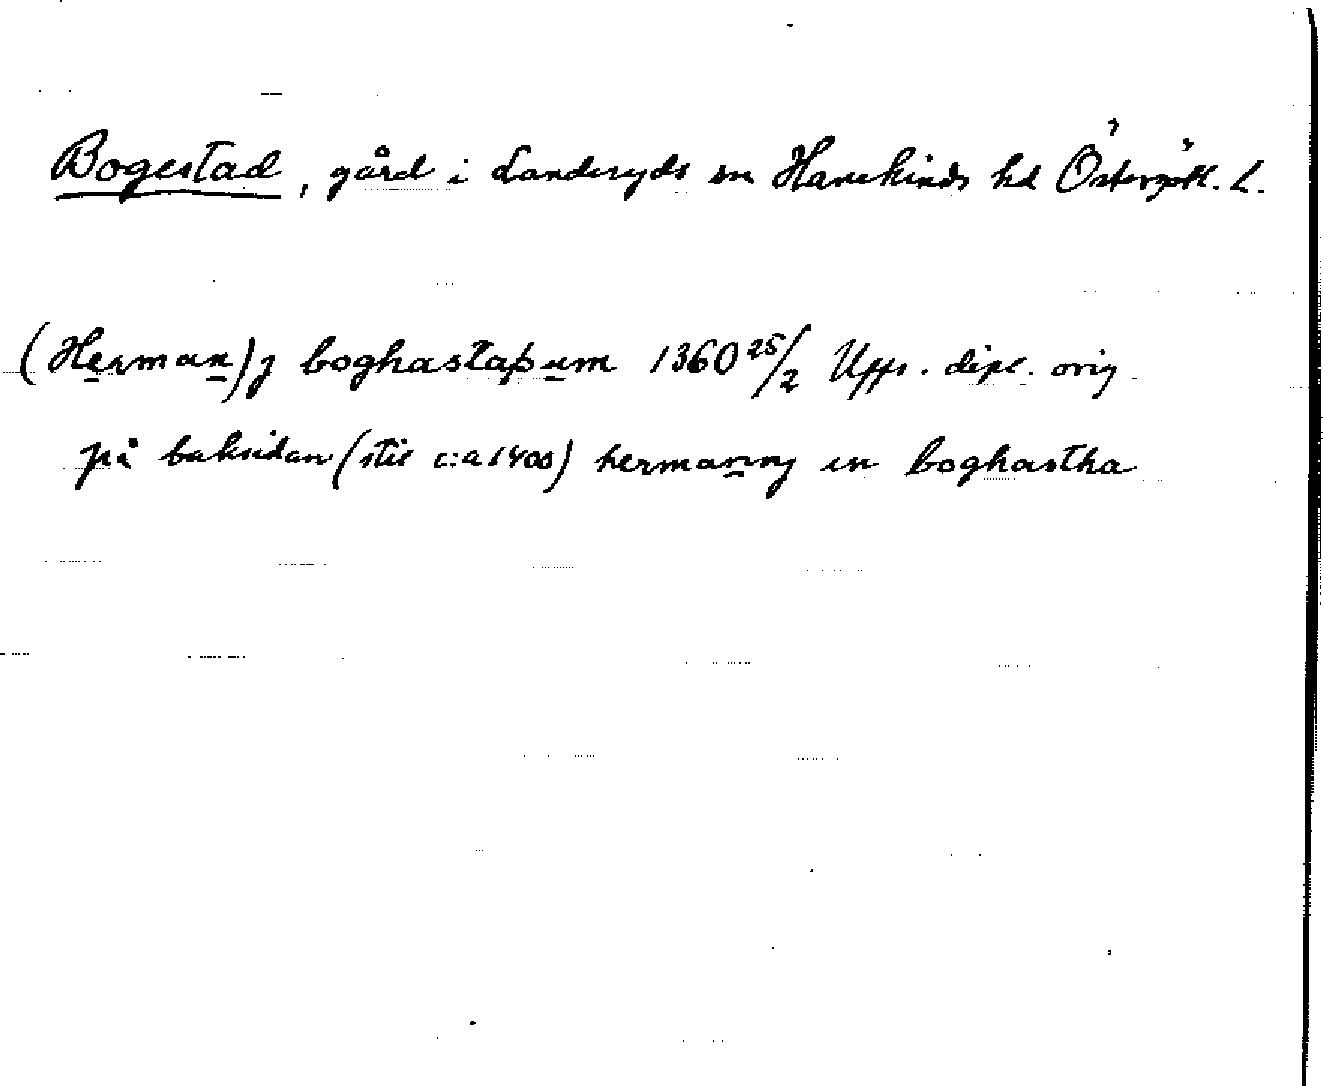 Bogestad, gård i Landeryds sn Hanekinds hd Östergötl. L.
(Herman) j boghastaþum 1360 25/2 Upps. dipl. orig
på baksidan (stil c:a 1400) hermanny in boghastha